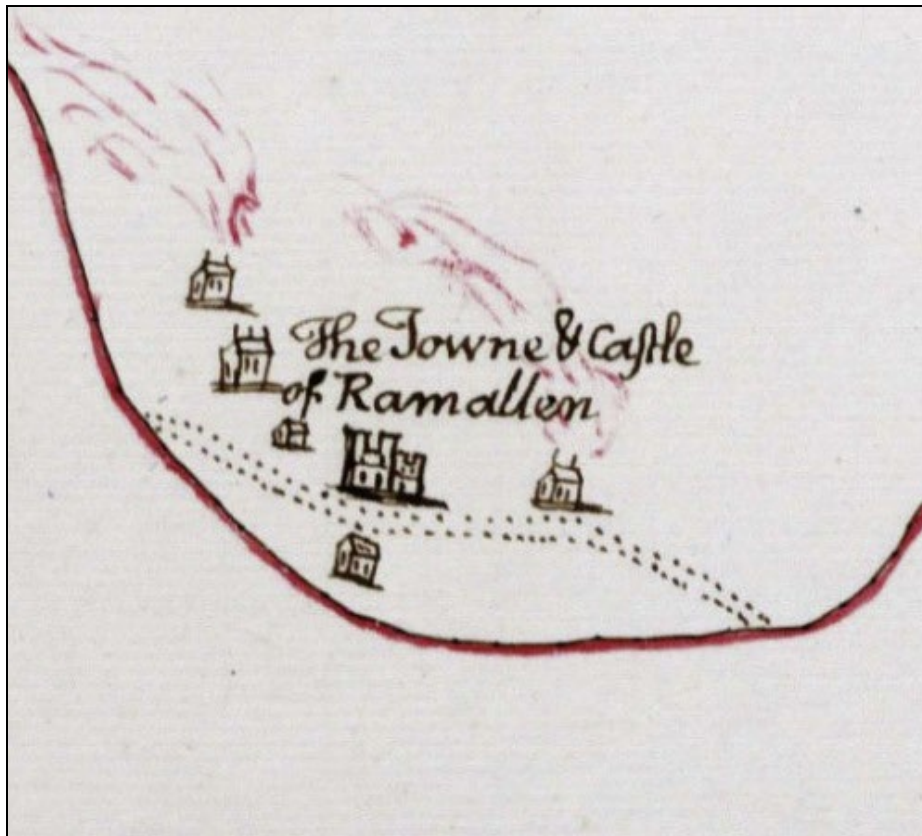 The Towne & Caſtle
of Ramallen